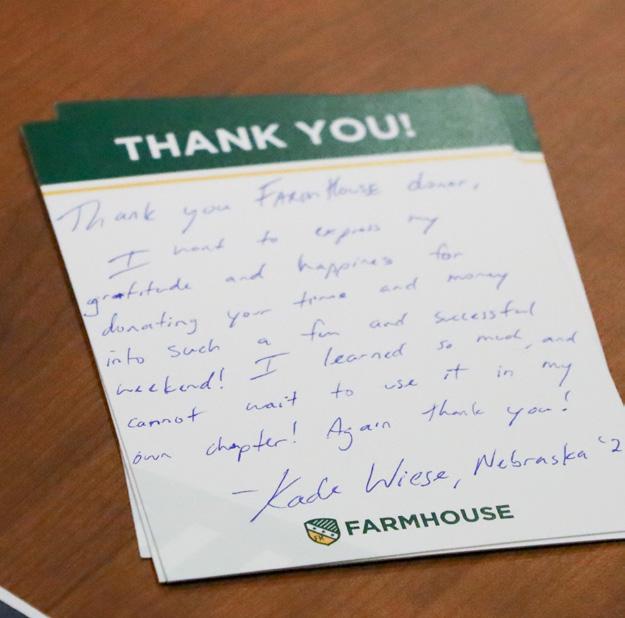 THANK YOU!
Thank you FARMHOUSE donor,
I want to express my
gratitude and happines for
donating your time and money
into such a fun and successful
weekend! I learned so much, and
cannot wait to use it in my
own chapter! Again thank you!
- Kade Wiese, Nebraska '2
FARMHOUSE